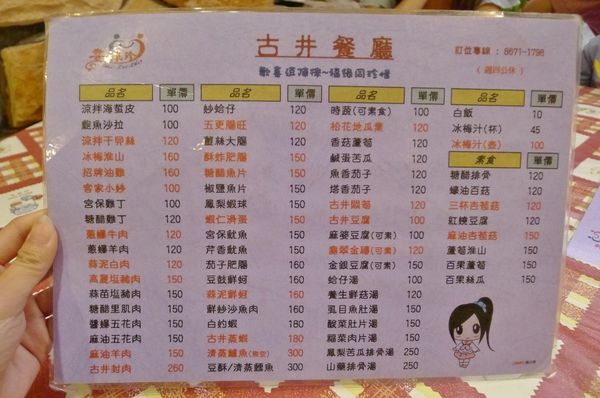 古井餐廳
歡喜逗陣揀~福緣同珍惜
訂位專線：8671-1798
（週四公休）
品名 單價
涼拌海蜇皮 100
龍魚沙拉 100
涼拌干貝絲 120
冰梅淮山 160
招牌油雞 160
客家小炒 160
宮保雞丁 160
糖醋雞丁 160
蔥爆牛肉 120
蔥爆羊肉 120
蒜泥白肉 120
高麗塩豬肉 150
蒜苗塩豬肉 150
糖醋里肌肉 150
醬爆五花肉 150
麻油五花肉 150
麻油羊肉 150
古井封肉 260
品名 單價
炒蛤仔 120
五更腸旺 120
薑絲大腸 120
酥炸肥腸 150
糖醋魚片 150
椒鹽魚片 150
鳳梨蝦球 150
蝦仁滑蛋 150
宮保魷魚 150
芹香魷魚 150
茄子肥腸 160
豆鼓鮮蚵 160
蒜泥鮮蚵 160
鮮炒沙魚肉 150
白灼蝦 180
古井蒸蝦 180
清蒸鱸魚 300
豆酥/清蒸鱈魚 300
品名 單價
時蔬(可素食) 100
松花地瓜葉 120
香菇蘆筍 120
鹹蛋苦瓜 120
魚香茄子 120
塔香茄子 120
古井豆腐 100
麻婆豆腐(可素) 100
金銀豆腐(可素) 120
蛤仔湯 100
養生鮮菇湯 150
虱目魚肚湯 150
酸菜肚片湯 150
榨菜肉片湯 150
鳳梨苦瓜排骨湯 250
山藥排骨湯 250
品名 單價
白飯 10
冰梅汁(杯) 45
冰梅汁(壺) 100
素食 單價
糖醋排骨 150
蠔油百菇 150
三杯杏菇 150
紅燒豆腐 120
麻油杏菇 150
蘆筍淮山 150
百果蘆筍 150
百果絲瓜 150